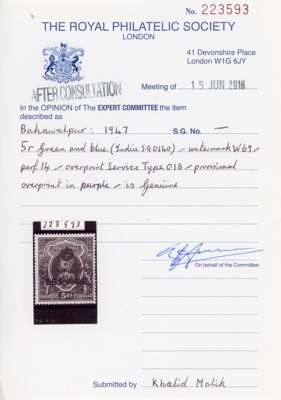 No. 223593
THE ROYAL PHILATELIC SOCIETY
LONDON
41 Devonshire Place
London W1G 6JY
AFTER CONSULTATION
Meeting of 15 JUN 2016
In the OPINION of The EXPERT COMMITTEE the item
described as
Bahawalpur: 1947 S.G. No. —
5r Green and blue (India SG O140) - watermark W69 -
perf 14 - overprint Service Type O13 - provisional
overprint in purple - is Genuine
223593
5 RS
On behalf of the Committee
Submitted by Khalid Malik